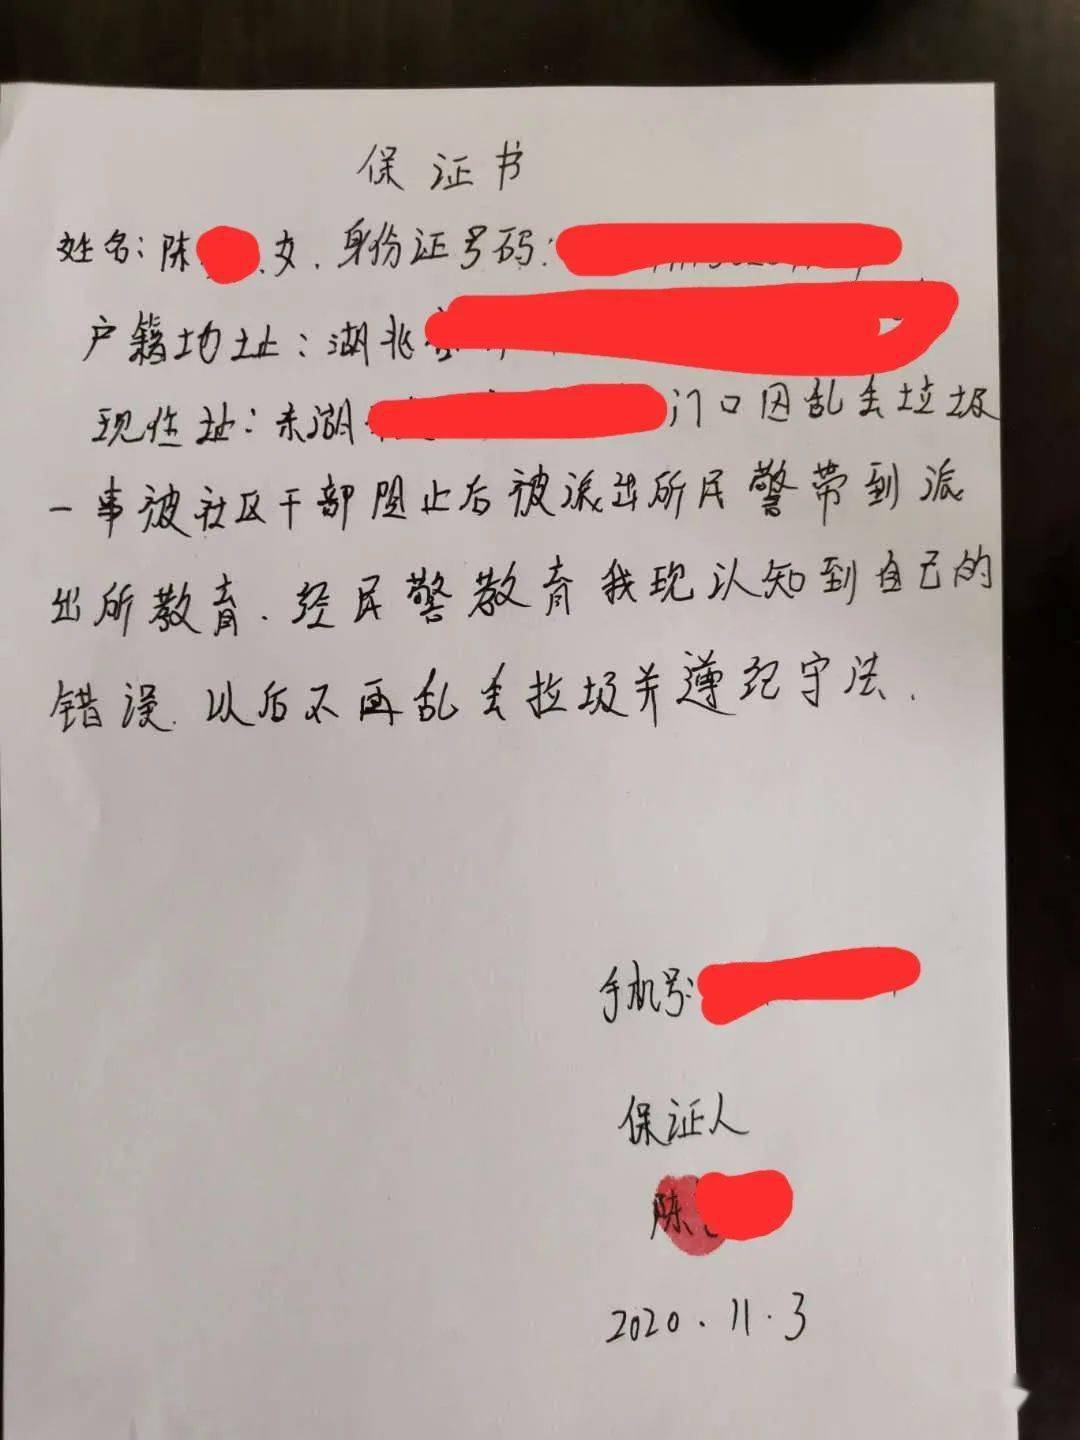 保证书
姓名:陈 女.身份证号码:
户籍地址:湖北
现住址:东湖 门口因乱丢垃圾
一事被社区干部阻止后被派出所民警带到派
出所教育.经民警教育我现认知到自己的
错误.以后不再乱丢垃圾并遵纪守法.
手机号:
保证人
陈
2020.11.3